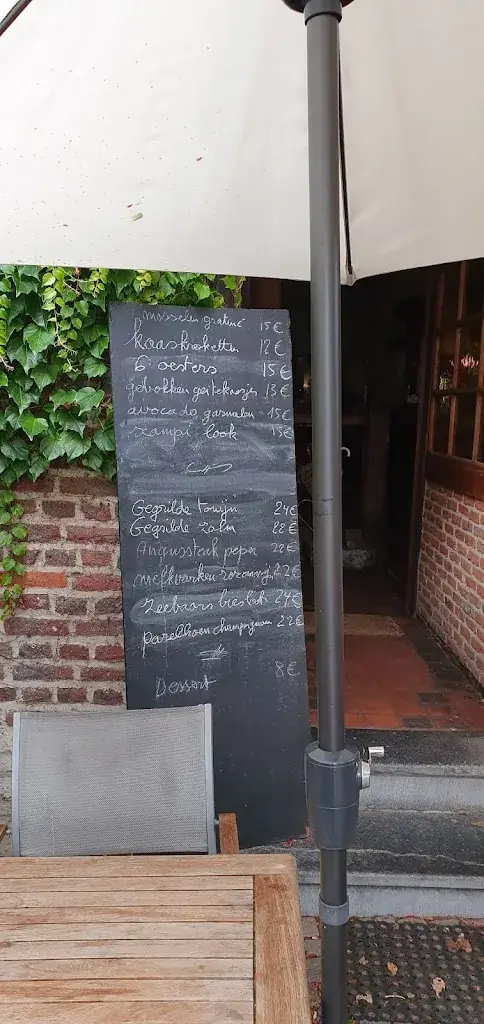 mosselen gratiné 15€
kaaskroketten 12€
6 oesters 15€
gebakken geitekaasjes 13€
avocado garnalen 15€
scampi look 15€
Gegrilde tonijn 24€
Gegrilde zalm 22€
Angussteak peper 22€
melkvarken rozemarijn 22€
Zeebaars bieslook 24€
parelhoen champignon 22€
Dessert 8€